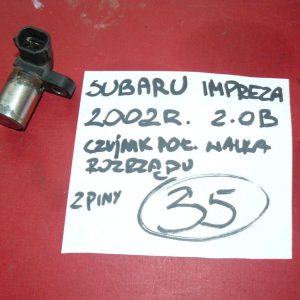 SUBARU IMPREZA
2002R. 2.0B
CZUJNIK POŁ. WAŁKA
ROZRZĄDU
2 PINY
35